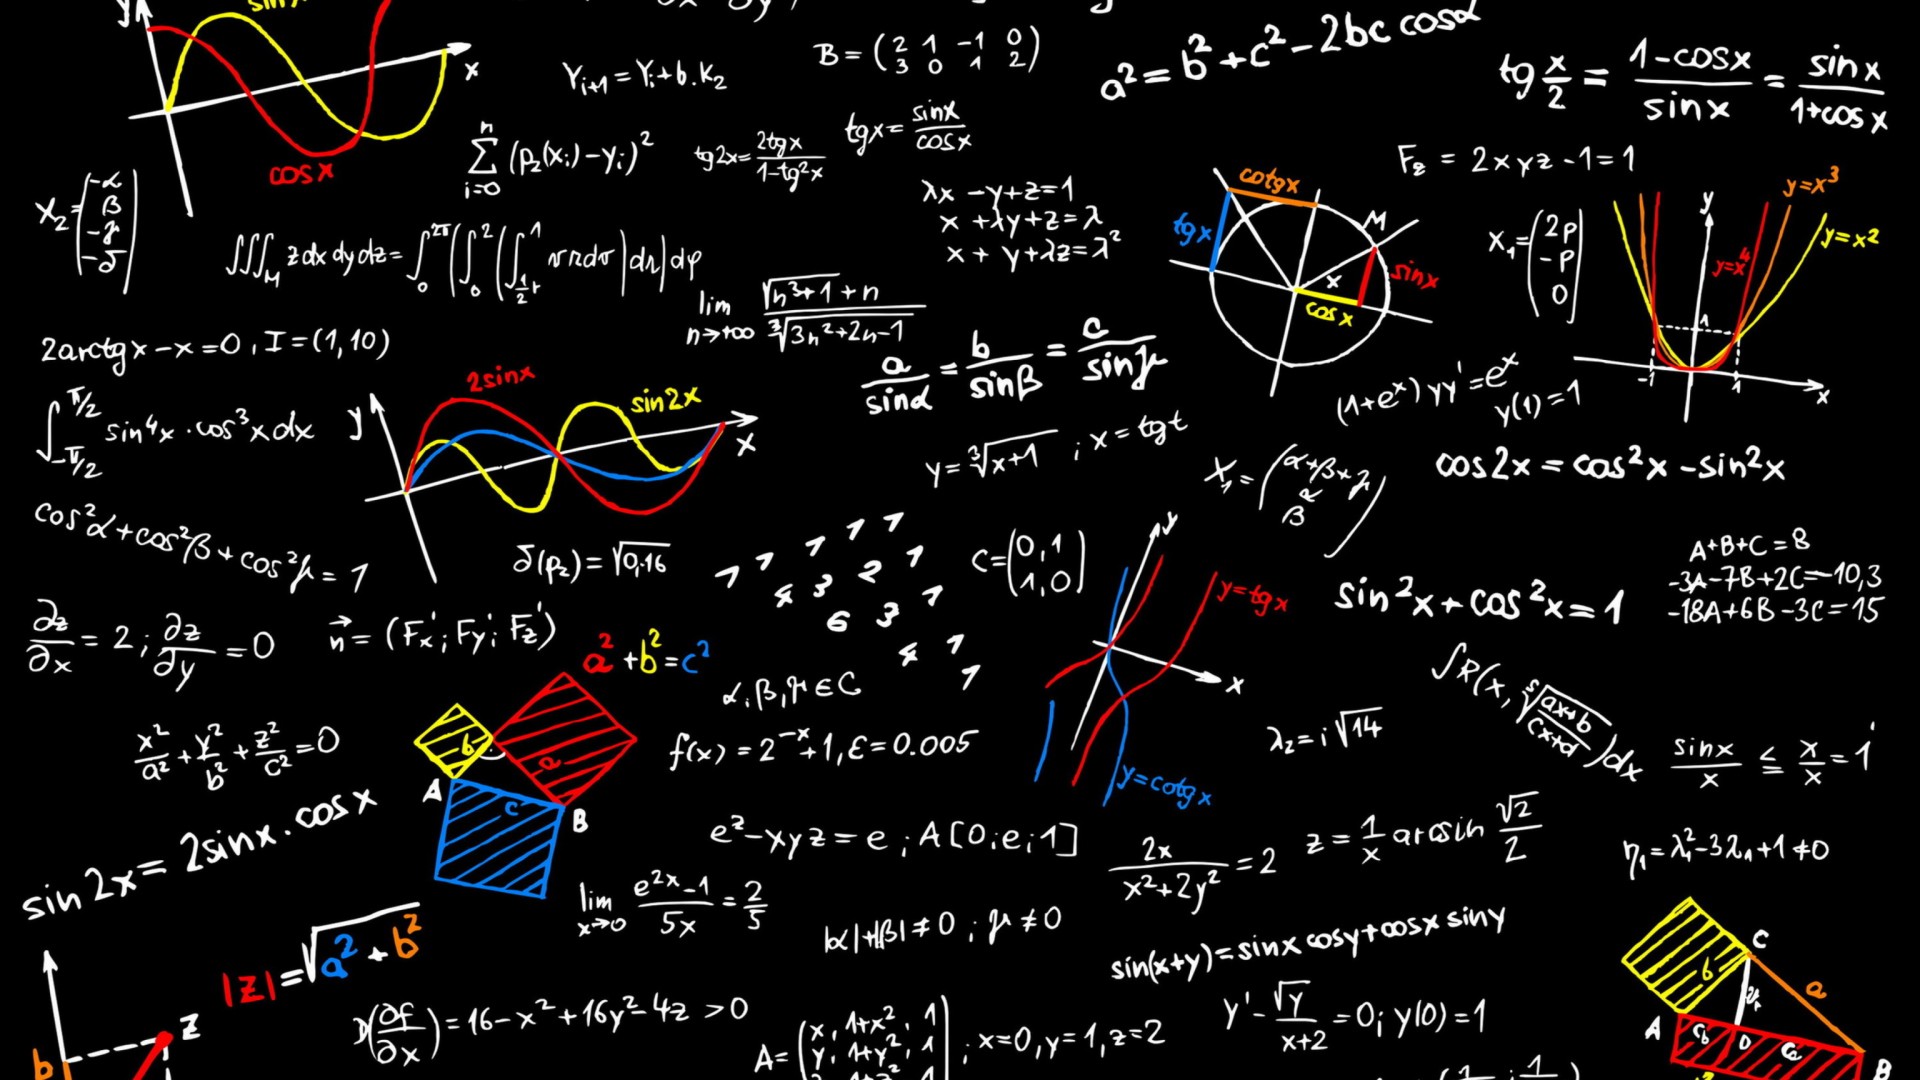 y
sin x
x
cos x
Y_{i+1} = Y_i + b.K_2
B = (2 1 -1 0
3 0 1 2)
a² = b² + c² - 2bc cosα
tg x/2 = (1-cosx)/sinx = sinx/(1+cosx)
∑_{i=0}^{n} (p₂(x_i) - y_i)²
tg2x = 2tgx/(1-tg²x)
tgx = sinx/cosx
F_z = 2xyz - 1 = 1
X₂ = (-α
β
-γ
-δ)
∭_M z dx dy dz = ∫_0^{2π} (∫_0^2 (∫_{½r}^1
λx - y + z = 1
x + λy + z = λ
x + y + λz = λ²
cotgx
tgx
M
x
sinx
cosx
X₁ = (2p
-p
0)
y
y=x³
y=x²
y=x⁴
1
-1
1
x
lim n→+∞ (√(n³+1) + n)/∛(3n²+2n-1)
2arctgx - x = 0, I = (1,10)
a/sinα = b/sinβ = c/sinγ
(1+e^x) yy' = e^x
y(1) = 1
∫_{-π/2}^{π/2} sin⁴x · cos³x dx
y
2sinx
sin2x
x
y = ∛(x+1) ; x = tgt
X₁ = (α+β+γ
α
β)
cos2x = cos²x - sin²x
cos²α + cos²β + cos²γ = 1
δ(p₂) = √0,16
1 1 1 1 1
4 3 2 1
6 3 1
4 1
1
C = (0, 1
1, 0)
y
y=tgx
x
y=cotgx
sin²x + cos²x = 1
A+B+C = 8
-3A-7B+2C = -10,3
-18A+6B-3C = 15
∂z/∂x = 2 ; ∂z/∂y = 0
n⃗ = (F_x'; F_y'; F_z')
a² + b² = c²
b
a
A
c
B
α, β, γ ∈ C
∫R(x, ⁵√((ax+b)/(cx+d)))dx
x²/a² + y²/b² + z²/c² = 0
f(x) = 2^{-x} + 1, ε = 0.005
λ₂ = i√14
sinx/x ≤ x/x = 1
sin 2x = 2sinx · cosx
e^z - xyz = e ; A[0; e; 1]
2x/(x²+2y²) = 2
z = 1/x arcsin √2/2
η₁ = λ₁² - 3λ₁ + 1 ≠ 0
lim x→0 (e^{2x}-1)/5x = 2/5
|α|+|β| ≠ 0 ; γ ≠ 0
sin(x+y) = sinx cosy + cosx siny
|z| = √(a² + b²)
Z
b
(∂f/∂x) = 16 - x² + 16y² - 4z > 0
A = (x, 1+x², 1
y, 1+y², 1
; x=0, y=1, z=2
y' - √y/(x+2) = 0; y(0) = 1
C
b
a
A
D
B